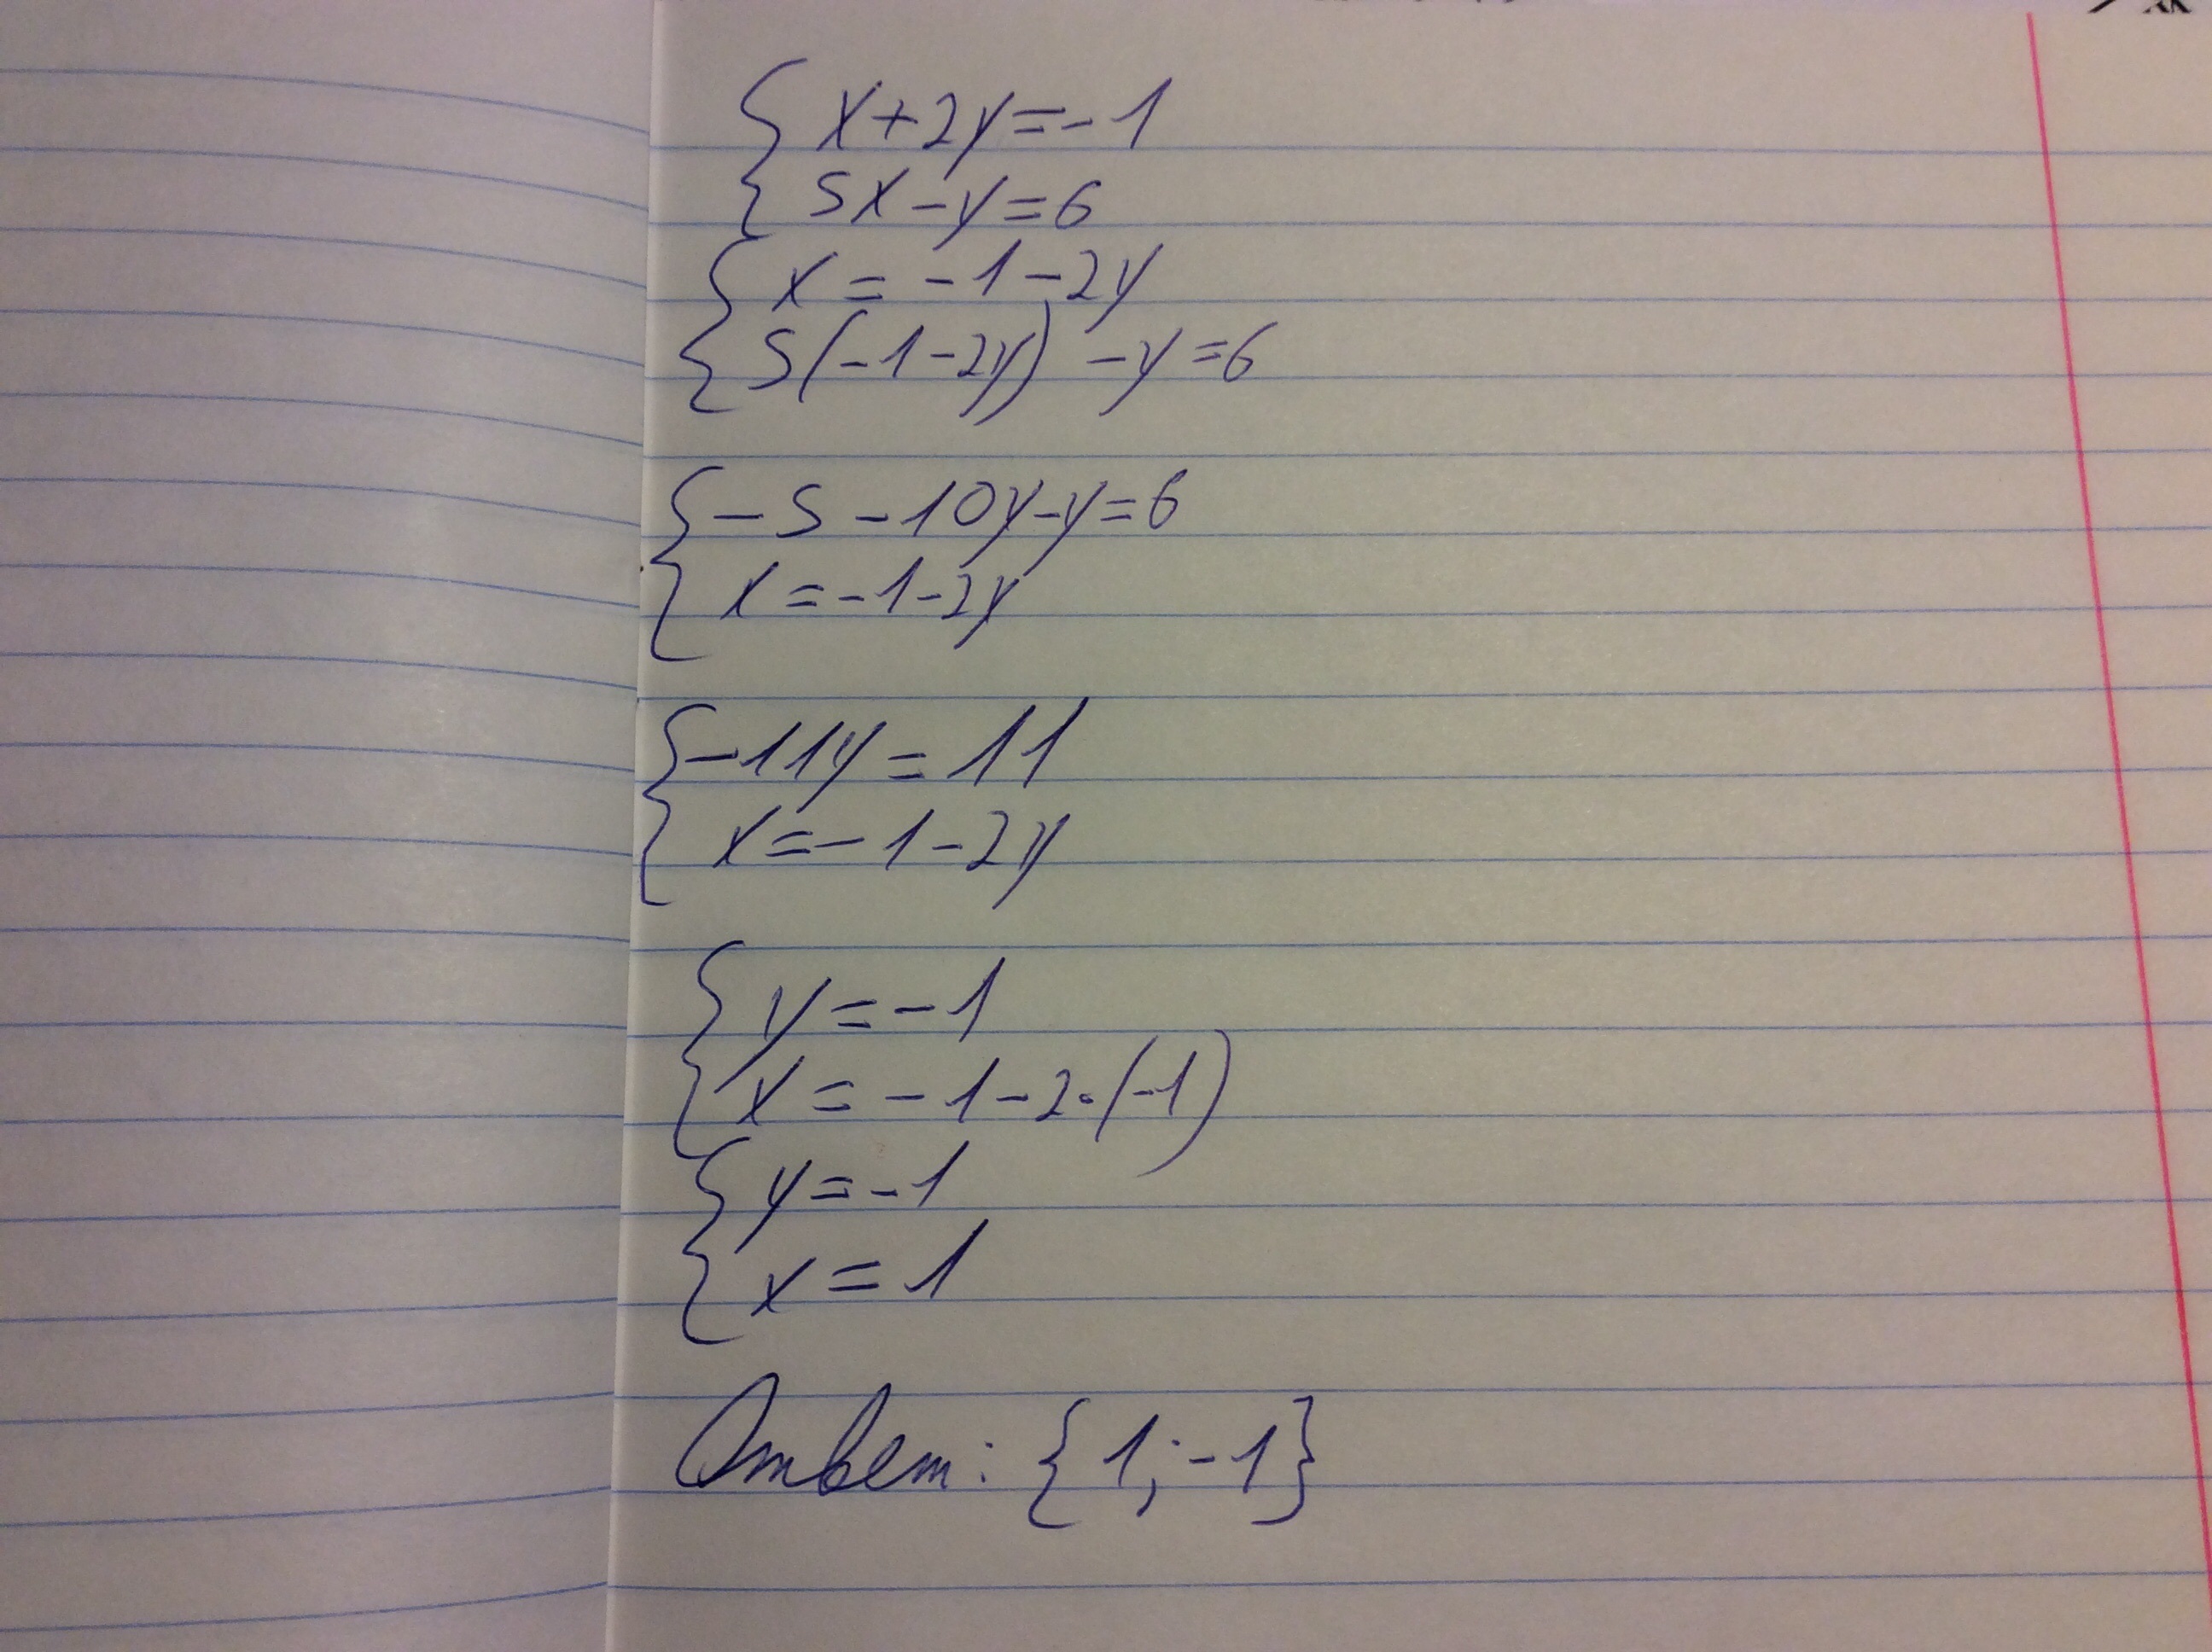 { x+2y=-1
5x-y=6
{ x = -1-2y
5(-1-2y) -y=6
{ -5-10y-y=6
x=-1-2y
{ -11y=11
x=-1-2y
{ y=-1
x=-1-2·(-1)
{ y=-1
x=1
Ответ: {1;-1}